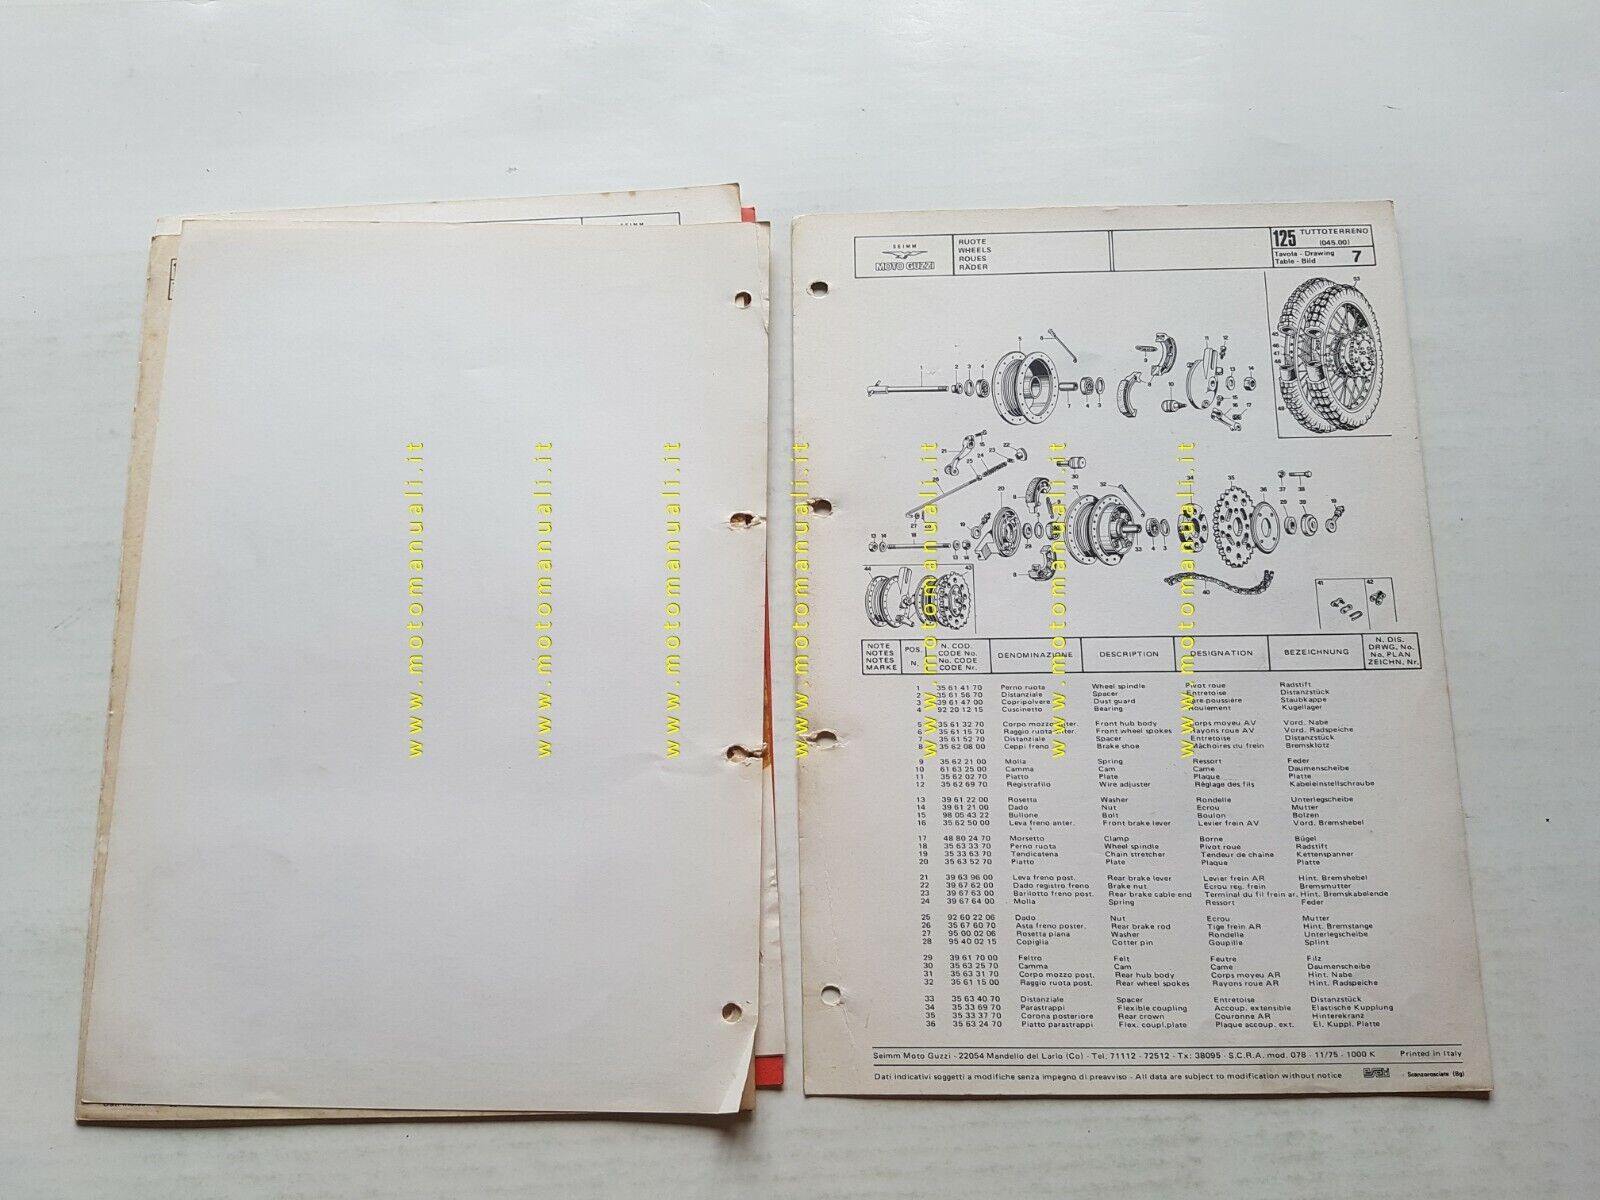 SEIMM
SEIMM
MOTO GUZZI
RUOTE
WHEELS
ROUES
RÄDER
125 TUTTOTERRENO
(045.00)
Tavola - Drawing
Table - Bild 7
NOTE
NOTES
NOTES
MARKE
POS.
N.
N. COD.
CODE No.
No. CODE
CODE Nr.
DENOMINAZIONE
DESCRIPTION
DESIGNATION
BEZEICHNUNG
N. DIS.
DRWG. No.
No. PLAN
ZEICHN. Nr.
1 35 61 41 70 Perno ruota Wheel spindle Pivot roue Radstift
2 35 61 56 70 Distanziale Spacer Entretoise Distanzstück
3 39 61 47 00 Copripolvere Dust guard Pare-poussière Staubkappe
4 92 20 12 15 Cuscinetto Bearing Roulement Kugellager
5 35 61 32 70 Corpo mozzo anter. Front hub body Corps moyeu AV Vord. Nabe
6 35 61 15 70 Raggio ruota anter. Front wheel spokes Rayons roue AV Vord. Radspeiche
7 35 61 52 70 Distanziale Spacer Entretoise Distanzstück
8 35 62 08 00 Ceppi freno Brake shoe Mâchoires du frein Bremsklotz
9 35 62 21 00 Molla Spring Ressort Feder
10 61 63 25 00 Camma Cam Came Daumenscheibe
11 35 62 02 70 Piatto Plate Plaque Platte
12 35 62 69 70 Registrafilo Wire adjuster Réglage des fils Kabeleinstellschraube
13 39 61 22 00 Rosetta Washer Rondelle Unterlegscheibe
14 39 61 21 00 Dado Nut Ecrou Mutter
15 98 05 43 22 Bullone Bolt Boulon Bolzen
16 35 62 50 00 Leva freno anter. Front brake lever Levier frein AV Vord. Bremshebel
17 48 80 24 70 Morsetto Clamp Borne Bügel
18 35 63 33 70 Perno ruota Wheel spindle Pivot roue Radstift
19 35 33 63 70 Tendicatena Chain stretcher Tendeur de chaine Kettenspanner
20 35 63 52 70 Piatto Plate Plaque Platte
21 39 63 96 00 Leva freno post. Rear brake lever Levier frein AR Hint. Bremshebel
22 39 67 62 00 Dado registro freno Brake nut Ecrou reg. frein Bremsmutter
23 39 67 63 00 Barilotto freno post. Rear brake cable end Terminal du fil frein ar. Hint. Bremskabelende
24 39 67 64 00 Molla Spring Ressort Feder
25 92 60 22 06 Dado Nut Ecrou Mutter
26 35 67 60 70 Asta freno poster. Rear brake rod Tige frein AR Hint. Bremstange
27 95 00 02 06 Rosetta piana Washer Rondelle Unterlegscheibe
28 95 40 02 15 Copiglia Cotter pin Goupille Splint
29 39 61 70 00 Feltro Felt Feutre Filz
30 35 63 25 70 Camma Cam Came Daumenscheibe
31 35 63 31 70 Corpo mozzo post. Rear hub body Corps moyeu AR Hint. Nabe
32 35 61 15 00 Raggio ruota post. Rear wheel spokes Rayons roue AR Hint. Radspeiche
33 35 63 40 70 Distanziale Spacer Entretoise Distanzstück
34 35 33 69 70 Parastrappi Flexible coupling Accoup. extensible Elastische Kupplung
35 35 33 37 70 Corona posteriore Rear crown Couronne AR Hinterekranz
36 35 63 24 70 Piatto parastrappi Flex. coupl.plate Plaque accoup. ext. El. Kuppl. Platte
Seimm Moto Guzzi - 22054 Mandello del Lario (Co) - Tel. 71112 - 72512 - Tx: 38095 - S.C.R.A. mod. 078 - 11/75 - 1000 K Printed in Italy
Dati indicativi soggetti a modifiche senza impegno di preavviso - All data are subject to modification without notice
Scanzorosciate (Bg)
www.motomanuali.it
www.motomanuali.it
www.motomanuali.it
www.motomanuali.it
www.motomanuali.it
www.motomanuali.it
www.motomanuali.it